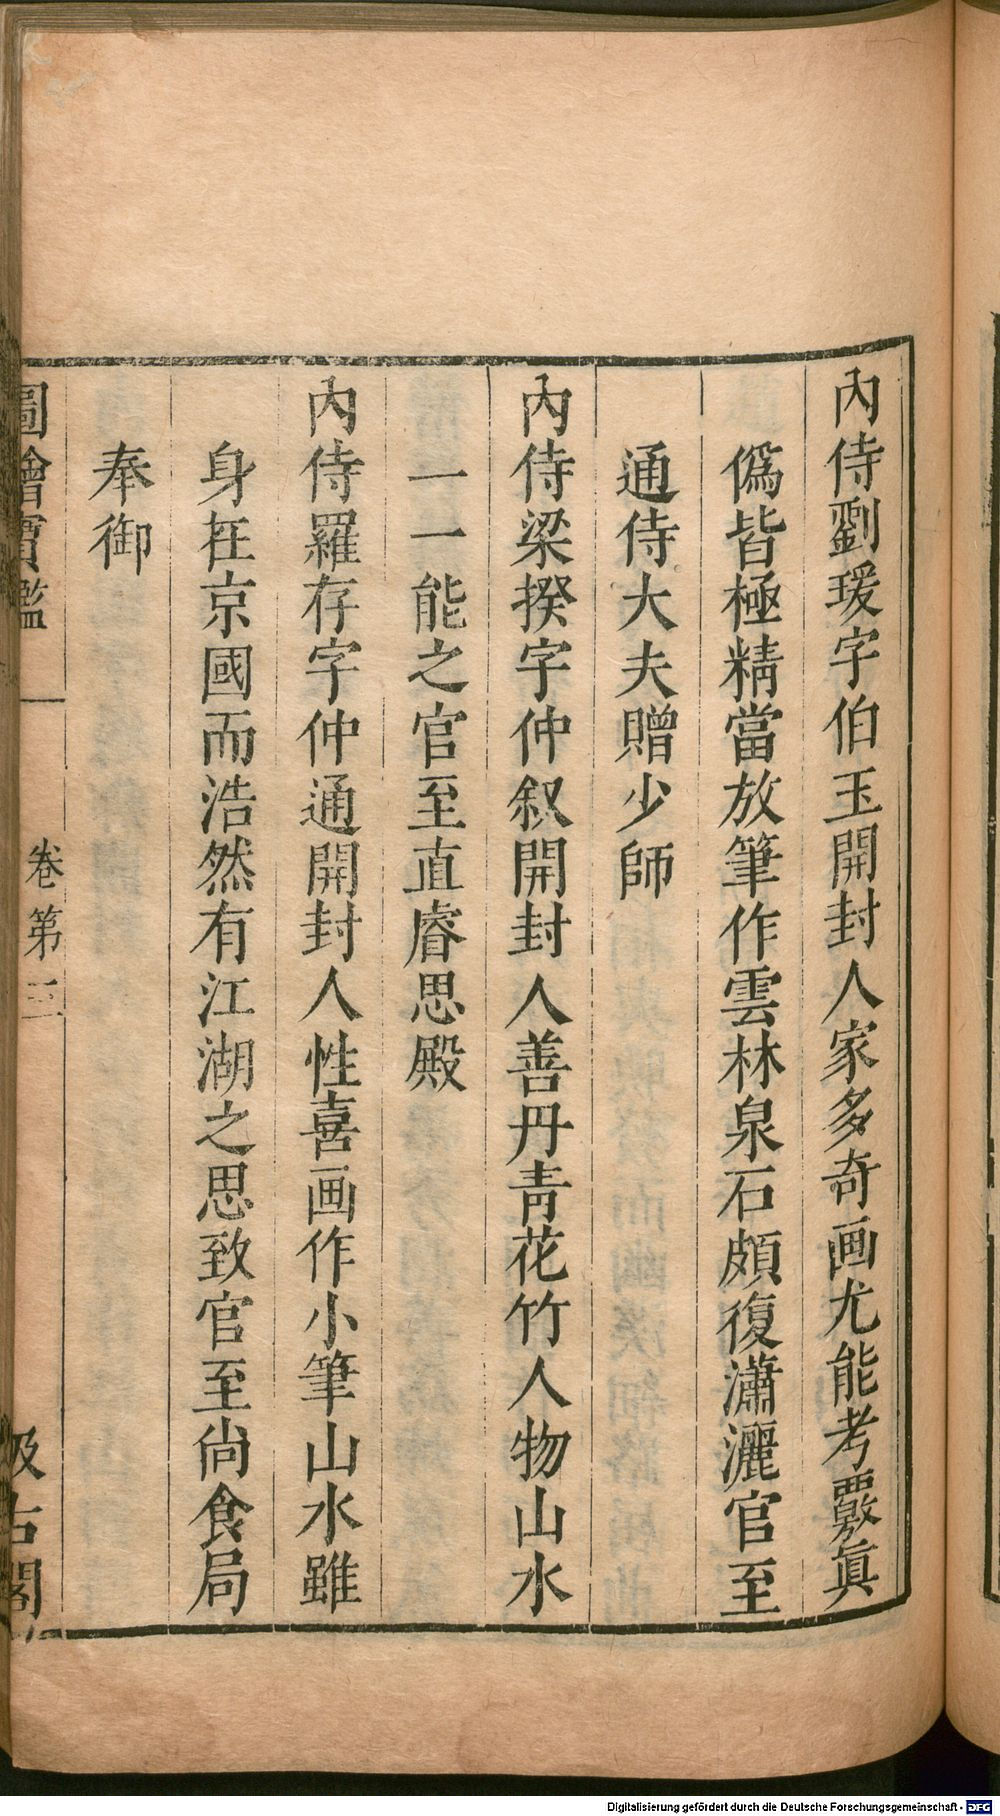 內侍劉瑗字伯玉開封人家多奇画尤能考覈眞
僞皆極精當放筆作雲林泉石頗復瀟灑官至
通侍大夫贈少師
內侍梁揆字仲叙開封人善丹青花竹人物山水
一一能之官至直睿思殿
內侍羅存字仲通開封人性喜画作小筆山水雖
身在京國而浩然有江湖之思致官至尙食局
奉御
圖繪寶鑑 卷第三 汲古閣
Digitalisierung gefördert durch die Deutsche Forschungsgemeinschaft - DFG